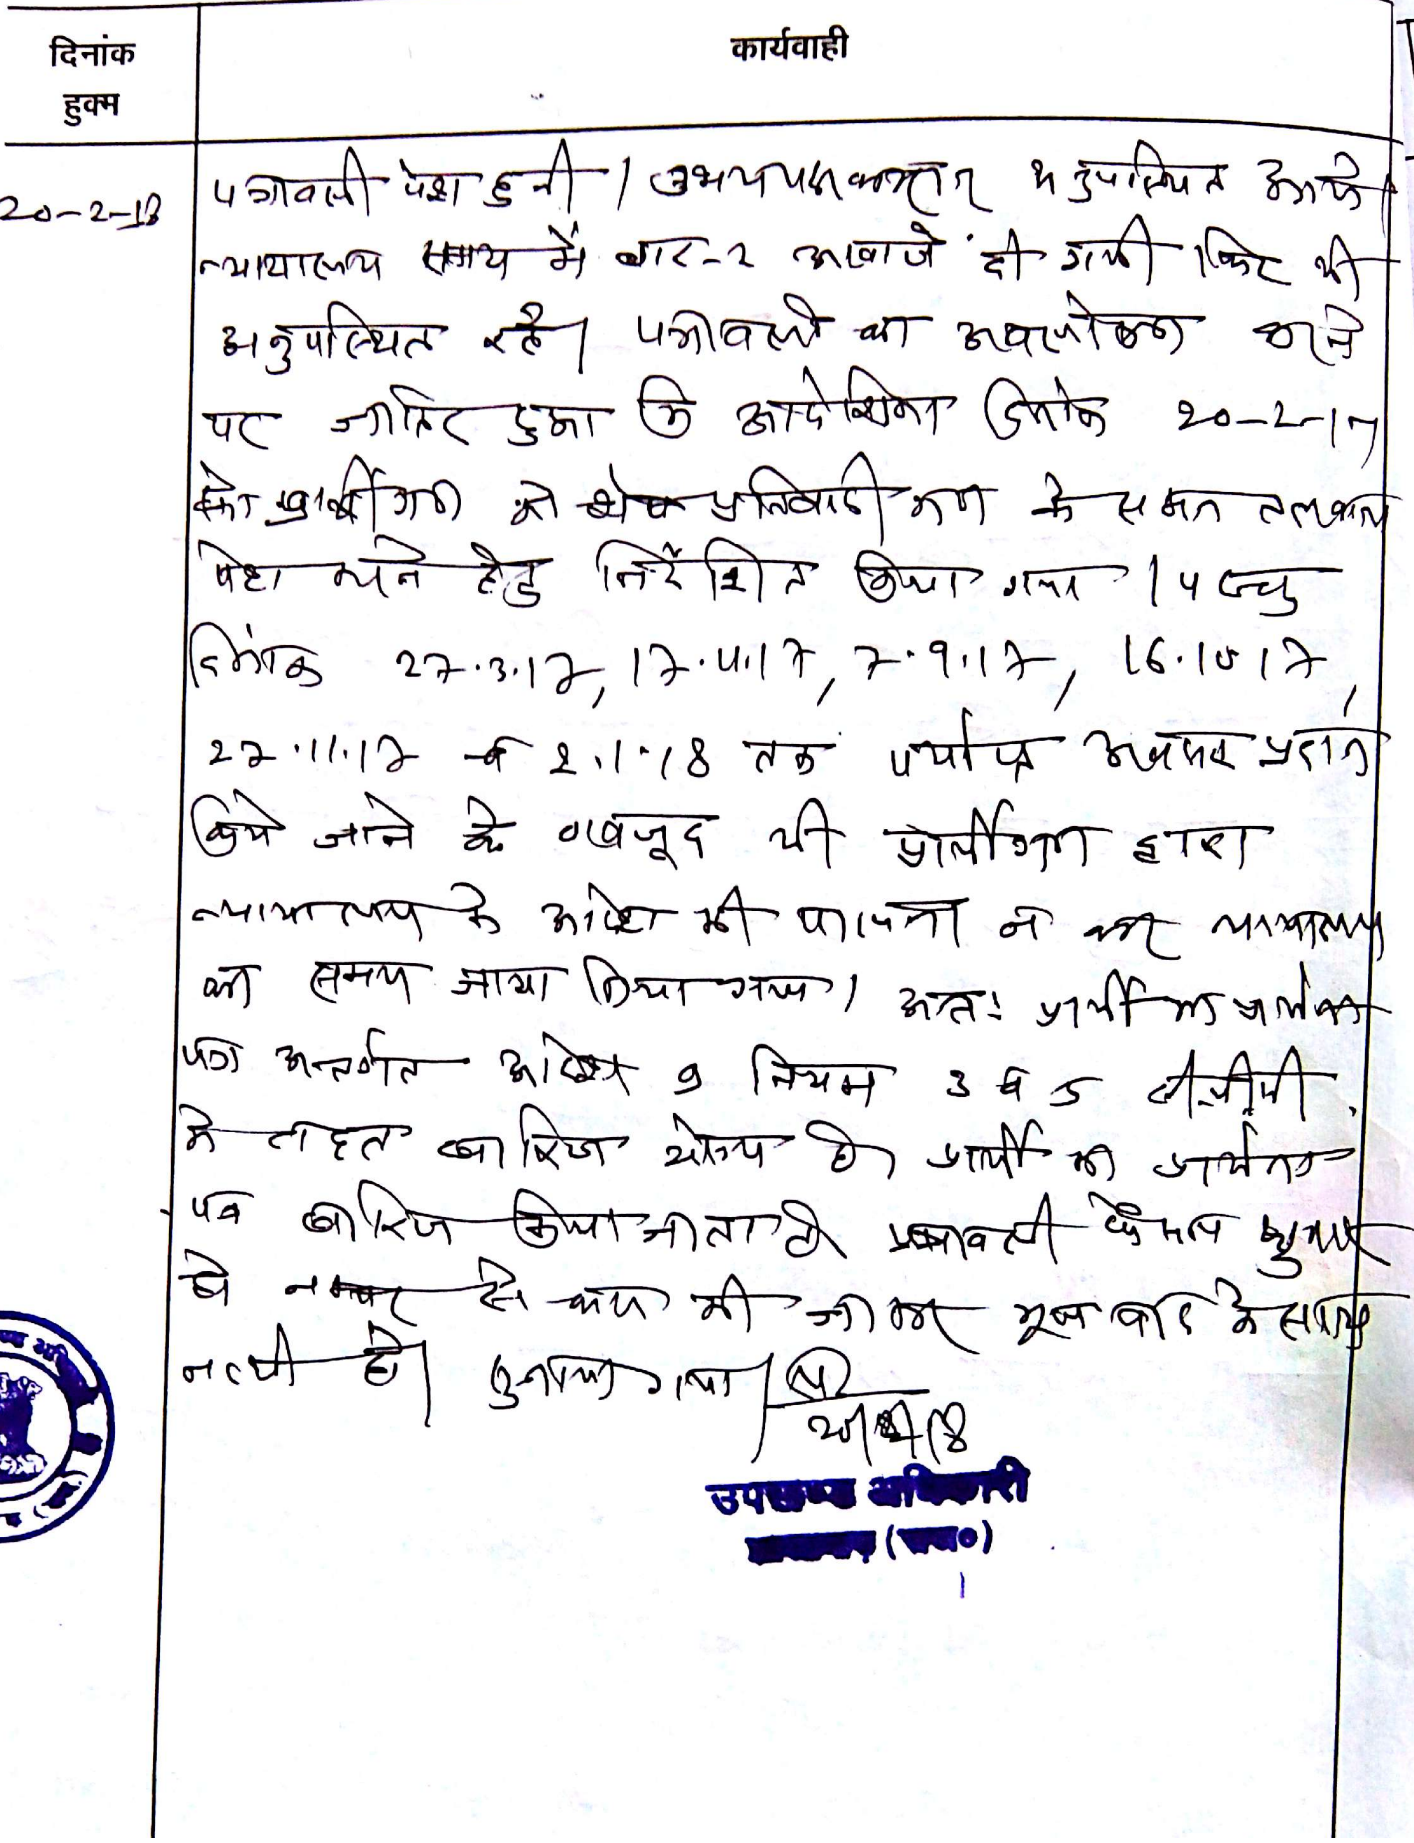 दिनांक
हुक्म
कार्यवाही
20-2-18
पत्रावली पेश हुयी। उभयपक्षकारान अनुपस्थित
न्यायालय समय में बार-2 आवाजे दी गयी। फिर भी
अनुपस्थित रहे। पत्रावली का अवलोकन करने
पर जाहिर हुआ कि आदेशिका दिनांक 20-2-17
को प्रार्थीगण को शेष प्रतिवादी गण के तलबाना
पेश करने हेतु निर्देशित किया गया। परन्तु
दिनांक 27.3.17, 17.4.17, 7.9.17, 16.10.17,
27.11.17 व 2.1.18 तक पर्याप्त अवसर प्रदान
किये जाने के बावजूद भी प्रार्थीगण द्वारा
न्यायालय के आदेश की पालना न कर न्यायालय
का समय जाया किया गया। अतः प्रार्थी का प्रार्थना
पत्र अन्तर्गत आदेश 9 नियम 3 व 5 सी.पी.सी.
के तहत खारिज योग्य है। प्रार्थी का प्रार्थना
पत्र खारिज किया जाता है। पत्रावली फैसल शुमार
हो नम्बर से कम की जाकर मूल वाद के साथ
नत्थी हो। सुनाया गया।
20/2/18
उपखण्ड अधिकारी
(राज०)